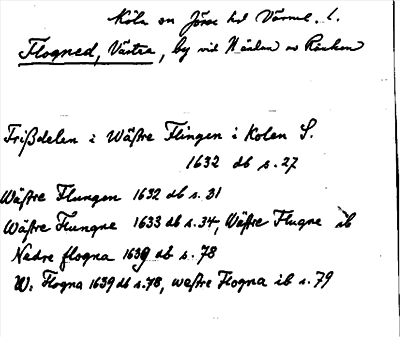 Köla sn Jösse hd Värml. l.
Flogned, Västra, by vid N änden av Räcken
Frißdelen i Wäßtre Flingen i Kolen S.
1632 db s. 27
Wäßtre Flungen 1632 db s. 31
Wäßtre Flungne 1633 db s. 34, Wäßtre Flugne ib
Nedre flogna 1639 db s. 78
W: Flogna 1639 db s. 78, waßtre Flogna ib s. 79